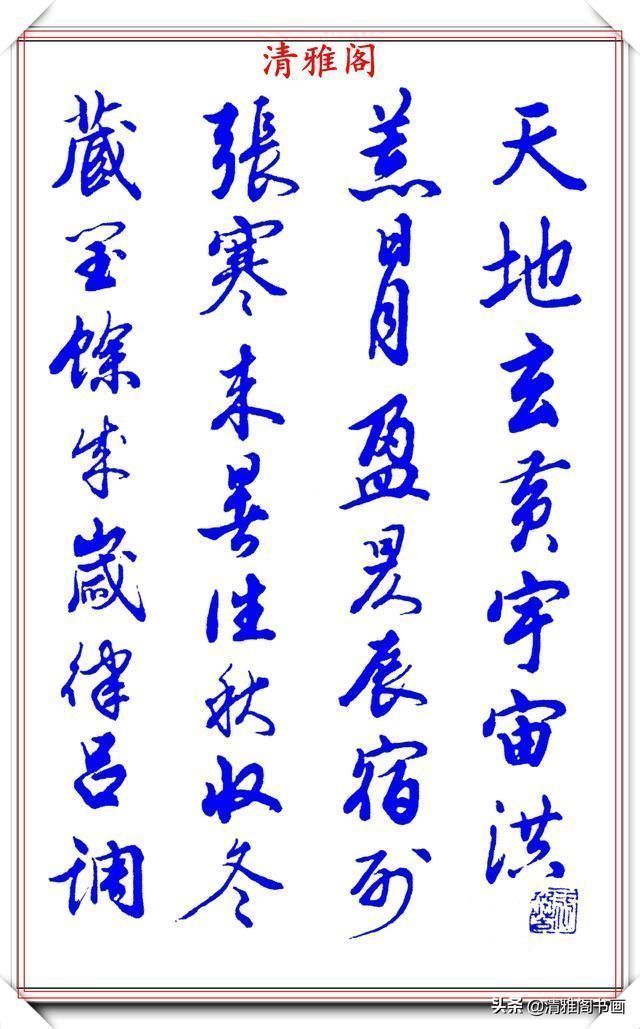 清雅阁
天地玄黄宇宙洪
荒日月盈昃辰宿列
張寒来暑往秋收冬
藏闰餘成歲律吕调
头条 @清雅阁书画